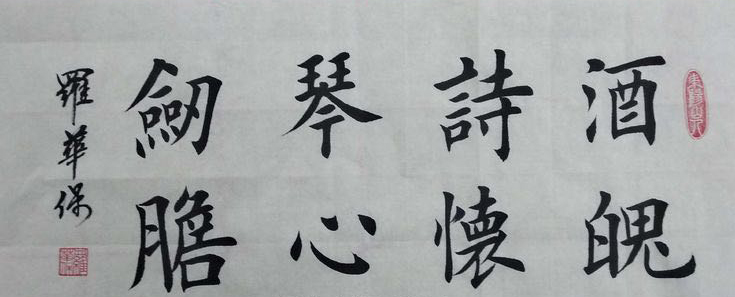 酒魄
詩懷
琴心
劔膽
羅華保